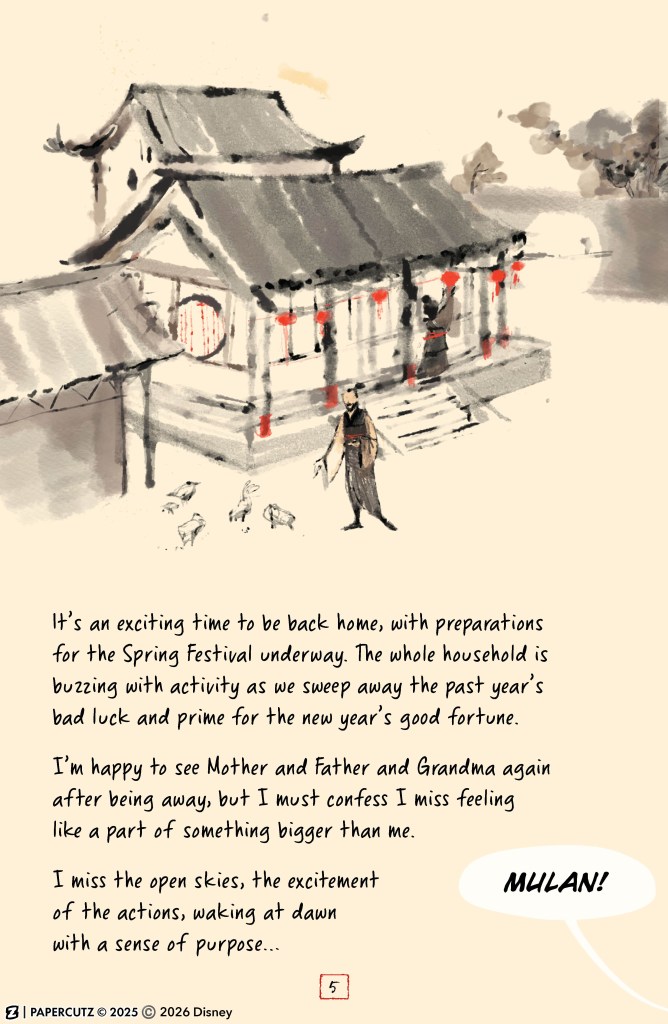 It's an exciting time to be back home, with preparations
for the Spring Festival underway. The whole household is
buzzing with activity as we sweep away the past year's
bad luck and prime for the new year's good fortune.
I'm happy to see Mother and Father and Grandma again
after being away, but I must confess I miss feeling
like a part of something bigger than me.
I miss the open skies, the excitement
of the actions, waking at dawn
with a sense of purpose...
MULAN!
5
Z | PAPERCUTZ © 2025 © 2026 Disney